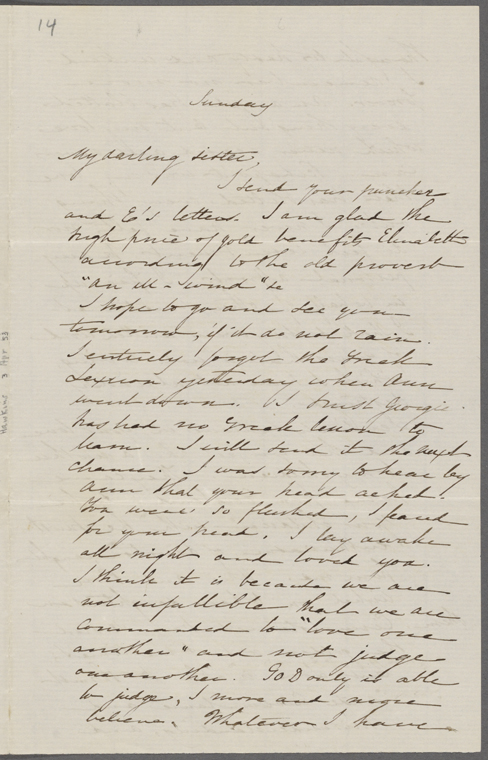 14
Sunday
My darling sister,
I send your puncher
and E's letters. I am glad the
high price of gold benefits Elizabeth
according to the old proverb
"an ill-wind" &c
I hope to go and see you
tomorrow, if it do not rain.
I entirely forgot the Greek
Lexicon yesterday when Ann
went down. I trust Georgie
has had no Greek lesson to
learn. I will send it the next
chance. I was sorry to hear by
Ann that your head ached.
You were so flushed, I feared
for your head. I lay awake
all night and loved you.
I think it is because we are
not infallible that we are
commanded to "love one
another" and not judge
one another. GoD only is able
to judge, I more and more
believe. Whatever I have